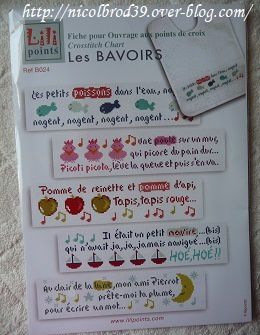 http://nicolbrod39.over-blog.com/
Lili
points
Fiche pour Ouvrage aux points de croix
Crosstitch Chart
Les BAVOIRS
Ref B024
Les petits poissons dans l'eau,
nagent, nagent, nagent, nagent...
Une poule sur un mur,
qui picore du pain dur...
Picoti picota, lève la queue et puis s'en va.
Pomme de reinette et pomme d'api,
Tapis, tapis rouge...
Il était un petit navire...(bis)
qui n'avait ja, ja, jamais navigué...(bis)
HOÉ, HOÉ!!
Au clair de la lune, mon ami Pierrot
prête-moi ta plume,
pour écrire un mot...
www.lilipoints.com